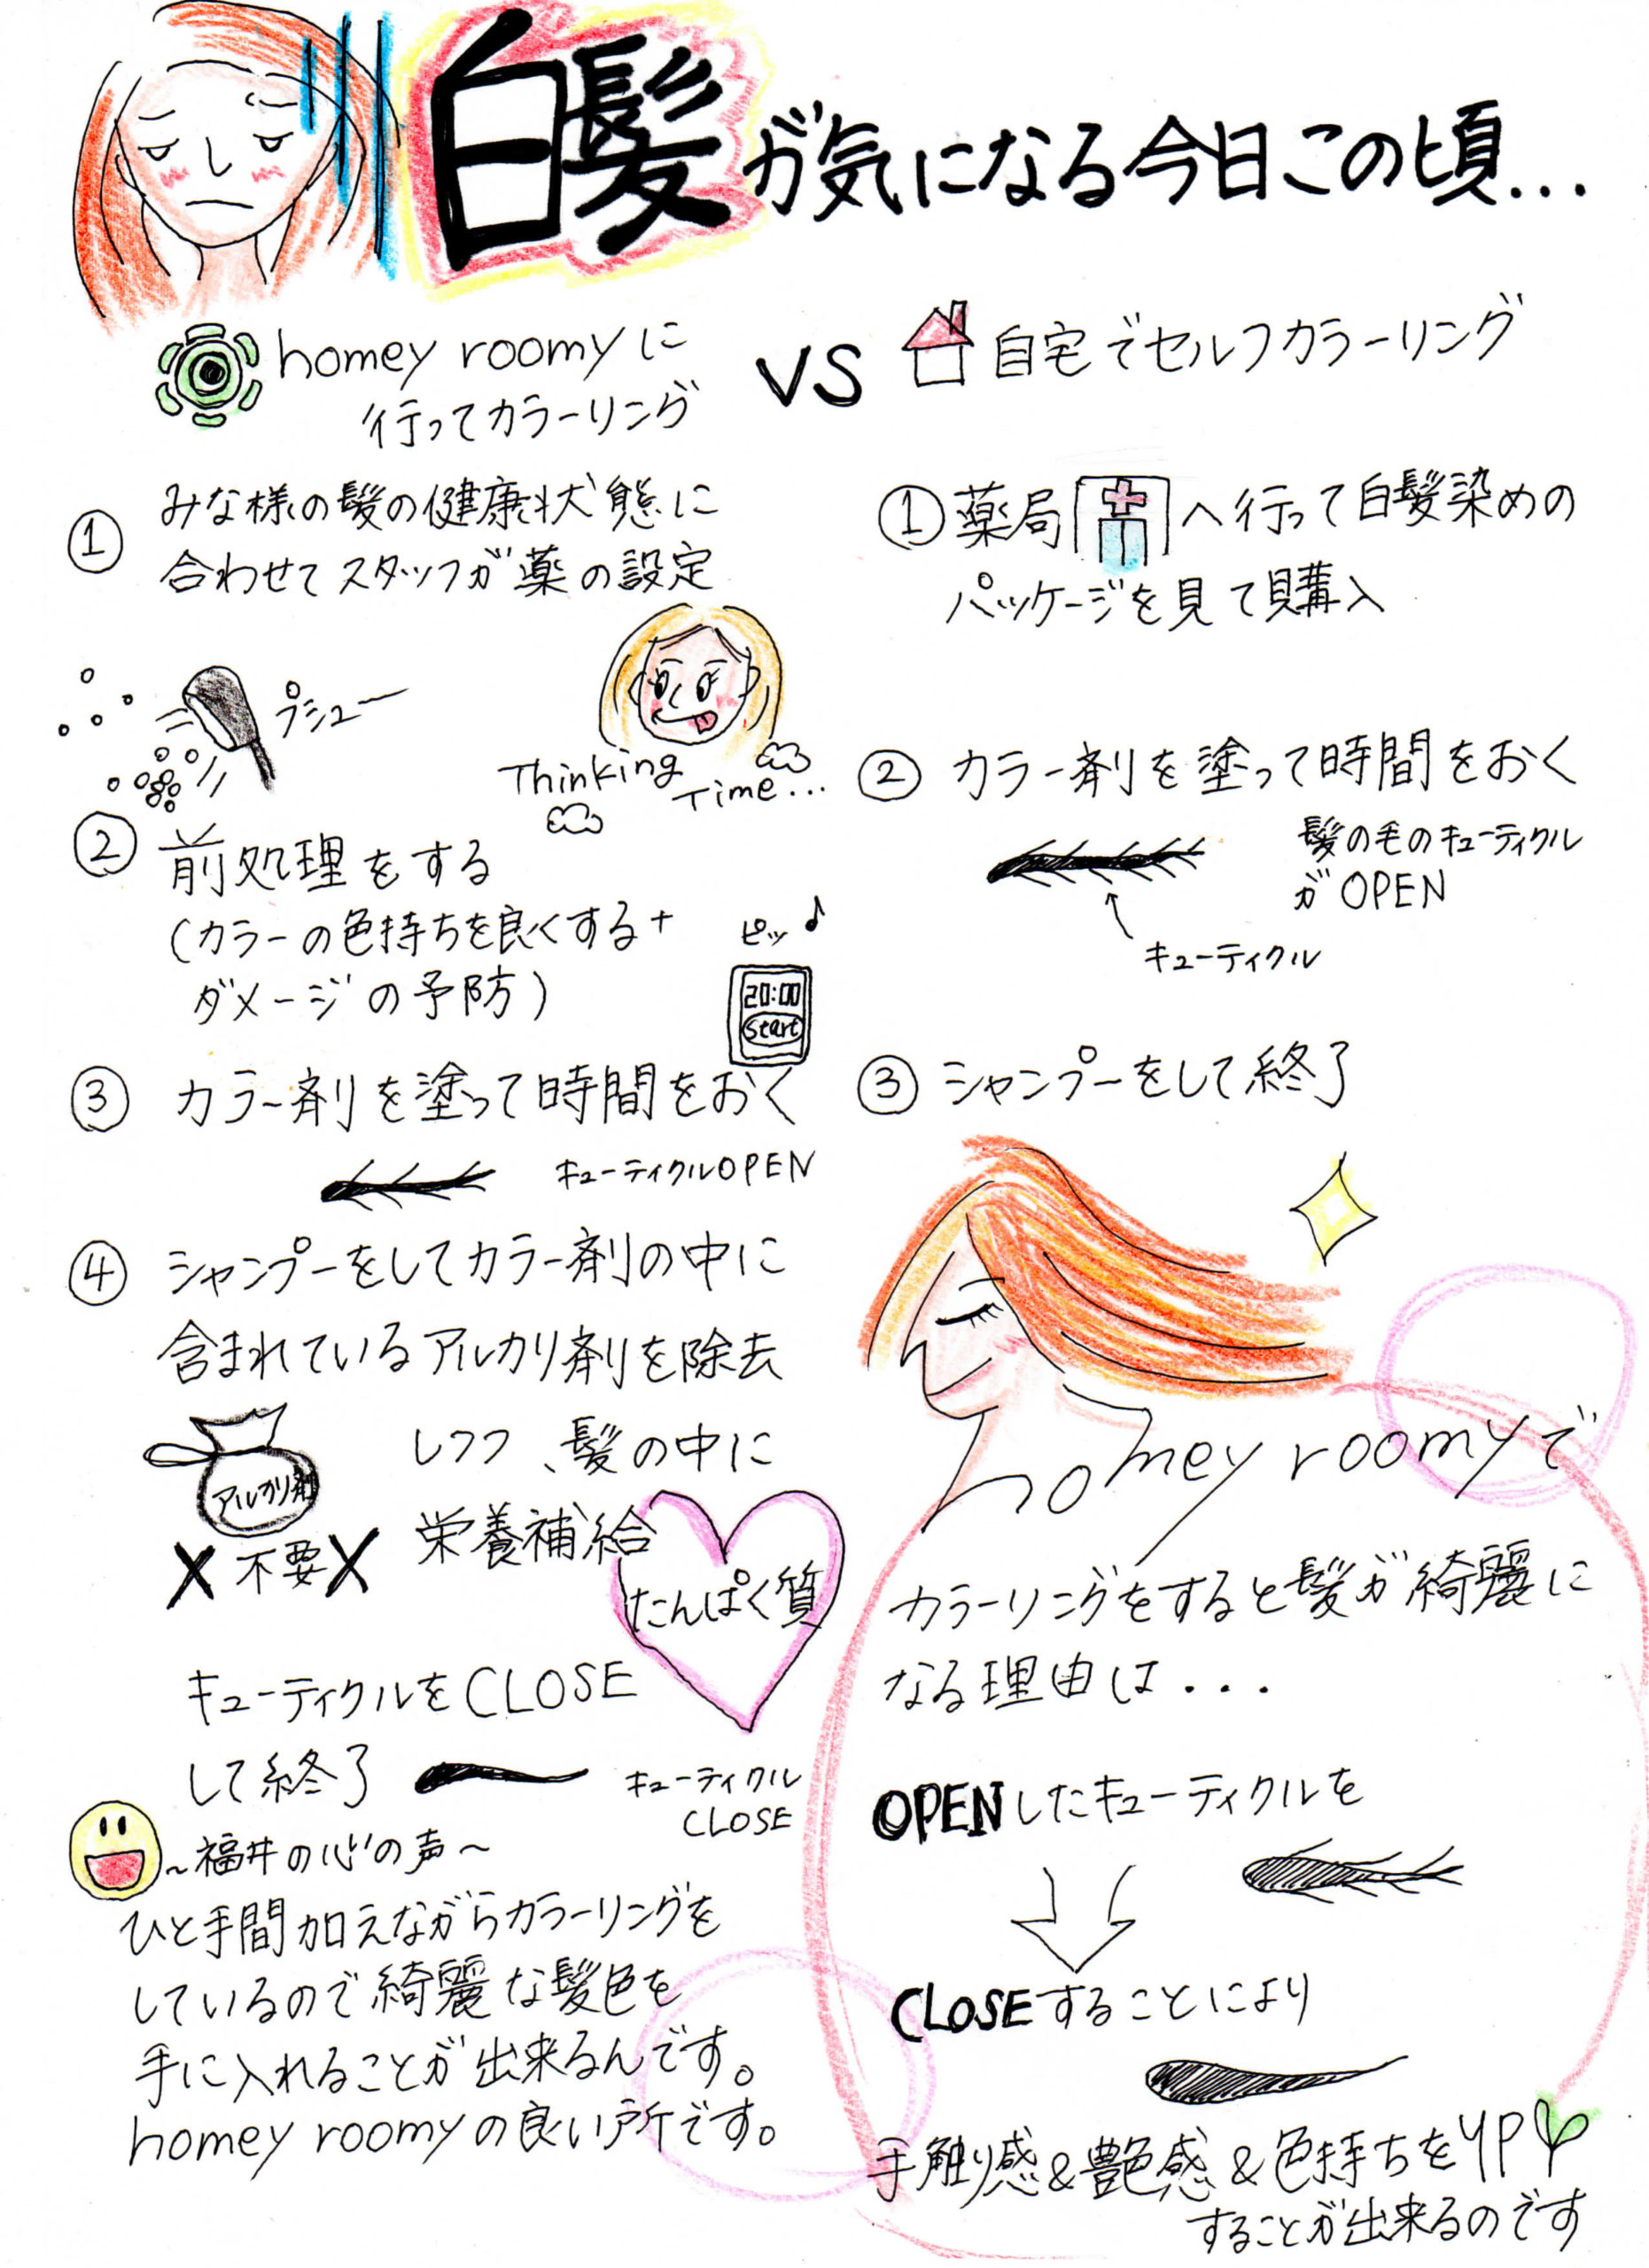 白髪が気になる今日この頃...
homey roomyに
行ってカラーリング
VS
自宅でセルフカラーリング
① みな様の髪の健康状態に
合わせてスタッフが薬の設定
プシュー
Thinking
Time...
② 前処理をする
(カラーの色持ちを良くする+
ダメージの予防)
ピッ♪
20:00
Start
③ カラー剤を塗って時間をおく
キューティクルOPEN
④ シャンプーをしてカラー剤の中に
含まれているアルカリ剤を除去
アルカリ剤
X 不要 X
髪の中に
栄養補給
たんぱく質
キューティクルをCLOSE
して終了
キューティクル
CLOSE
~福井の心の声~
ひと手間加えながらカラーリングを
しているので綺麗な髪色を
手に入れることが出来るんです。
homey roomyの良い所です。
① 薬局へ行って白髪染めの
パッケージを見て購入
② カラー剤を塗って時間をおく
髪の毛のキューティクル
がOPEN
キューティクル
③ シャンプーをして終了
homey roomyで
カラーリングをすると髪が綺麗に
なる理由は...
OPENしたキューティクルを
CLOSEすることにより
手触り感&艶感&色持ちをUP
することが出来るのです